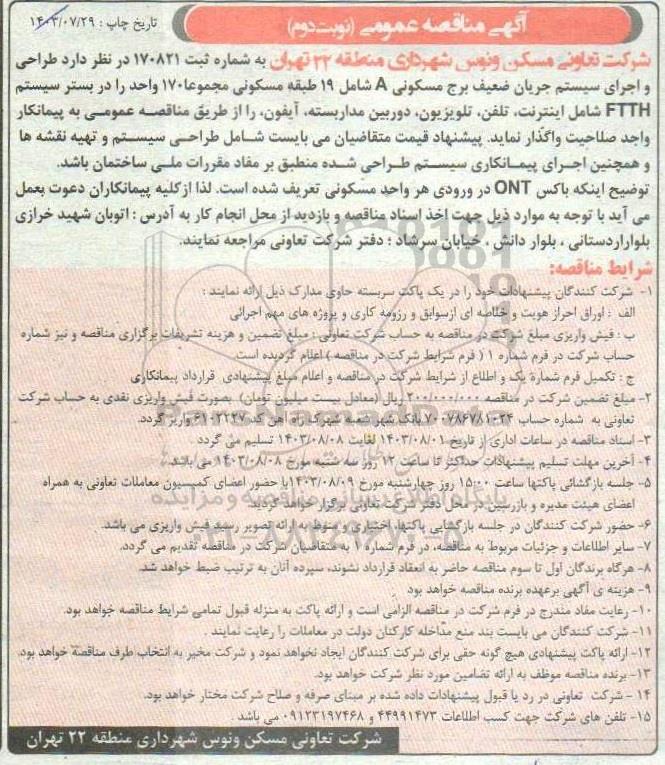 آگهی مناقصه عمومی (نوبت دوم)
تاریخ چاپ : ۱۴۰۳/۰۷/۲۹
شرکت تعاونی مسکن ونوس شهرداری منطقه ۲۲ تهران به شماره ثبت ۱۷۰۸۲۱ در نظر دارد طراحی
و اجرای سیستم جریان ضعیف برج مسکونی A شامل ۱۹ طبقه مسکونی مجموعا ۱۷۰ واحد را در بستر سیستم
FTTH شامل اینترنت، تلفن، تلویزیون، دوربین مداربسته، آیفون، را از طریق مناقصه عمومی به پیمانکار
واجد صلاحیت واگذار نماید. پیشنهاد قیمت متقاضیان می بایست شامل طراحی سیستم و تهیه نقشه ها
و همچنین اجرای پیمانکاری سیستم طراحی شده منطبق بر مفاد مقررات ملی ساختمان باشد.
توضیح اینکه باکس ONT در ورودی هر واحد مسکونی تعریف شده است. لذا ازکلیه پیمانکاران دعوت بعمل
می آید با توجه به موارد ذیل جهت اخذ اسناد مناقصه و بازدید از محل انجام کار به آدرس : اتوبان شهید خرازی
بلوار اردستانی ، بلوار دانش ، خیابان سرشاد ؛ دفتر شرکت تعاونی مراجعه نمایند.
شرایط مناقصه:
۱- شرکت کنندگان پیشنهادات خود را در یک پاکت سربسته حاوی مدارک ذیل ارائه نمایند :
الف : اوراق احراز هویت و خلاصه ای ازسوابق و رزومه کاری و پروژه های مهم اجرائی
ب : فیش واریزی مبلغ شرکت در مناقصه به حساب شرکت تعاونی ؛ مبلغ تضمین و هزینه تشریفات برگزاری مناقصه و نیز شماره
حساب شرکت در فرم شماره ۱ ( فرم شرایط شرکت در مناقصه ) اعلام گردیده است
ج : تکمیل فرم شماره یک و اطلاع از شرایط شرکت در مناقصه و اعلام مبلغ پیشنهادی قرارداد پیمانکاری
۲- مبلغ تضمین شرکت در مناقصه ۲۰۰/۰۰۰/۰۰۰ ریال (معادل بیست میلیون تومان) بصورت فیش واریزی نقدی به حساب شرکت
تعاونی به شماره حساب ۷۰۰۷۸۶۷۸۱۰۲۴ بانک شهر شعبه شهرک راه آهن کد ۶۱۰۲۲۲۷ واریز گردد.
۳- اسناد مناقصه در ساعات اداری از تاریخ ۱۴۰۳/۰۸/۰۱ لغایت ۱۴۰۳/۰۸/۰۸ تسلیم می گردد .
۴- آخرین مهلت تسلیم پیشنهادات حداکثر تا ساعت ۱۲ روز سه شنبه مورخ ۱۴۰۳/۰۸/۰۸ می باشد.
۵- جلسه بازگشائی پاکتها ساعت ۱۵:۰۰ روز چهارشنبه مورخ ۱۴۰۳/۰۸/۰۹ با حضور اعضای کمیسیون معاملات تعاونی به همراه
اعضای هیئت مدیره و بازرسین در محل دفتر شرکت تعاونی برگزار خواهد گردید.
۶- حضور شرکت کنندگان در جلسه بازگشایی پاکتها، اختیاری و منوط به ارائه تصویر رسید فیش واریزی می باشد.
۷- سایر اطلاعات و جزئیات مربوط به مناقصه، در فرم شماره ۱ به متقاضیان شرکت در مناقصه تقدیم می گردد.
۸- هرگاه برندگان اول تا سوم مناقصه حاضر به انعقاد قرارداد نشوند، سپرده آنان به ترتیب ضبط خواهد شد.
۹- هزینه ی آگهی برعهده برنده مناقصه خواهد بود
۱۰- رعایت مفاد مندرج در فرم شرکت در مناقصه الزامی است و ارائه پاکت به منزله قبول تمامی شرایط مناقصه خواهد بود.
۱۱- شرکت کنندگان می بایست بند منع مداخله کارکنان دولت در معاملات را رعایت نمایند .
۱۲- ارائه پاکت پیشنهادی هیچ گونه حقی برای شرکت کنندگان ایجاد نخواهد نمود و شرکت مخیر به انتخاب طرف مناقصه خواهد بود.
۱۳- برنده مناقصه موظف به ارائه تضامین مورد نظر شرکت خواهد بود.
۱۴- شرکت تعاونی در رد یا قبول پیشنهادات داده شده بر مبنای صرفه و صلاح شرکت مختار خواهد بود.
۱۵- تلفن های شرکت جهت کسب اطلاعات ۴۴۹۹۱۴۷۳ و ۰۹۱۲۳۱۹۷۴۶۸ می باشد .
شرکت تعاونی مسکن ونوس شهرداری منطقه ۲۲ تهران